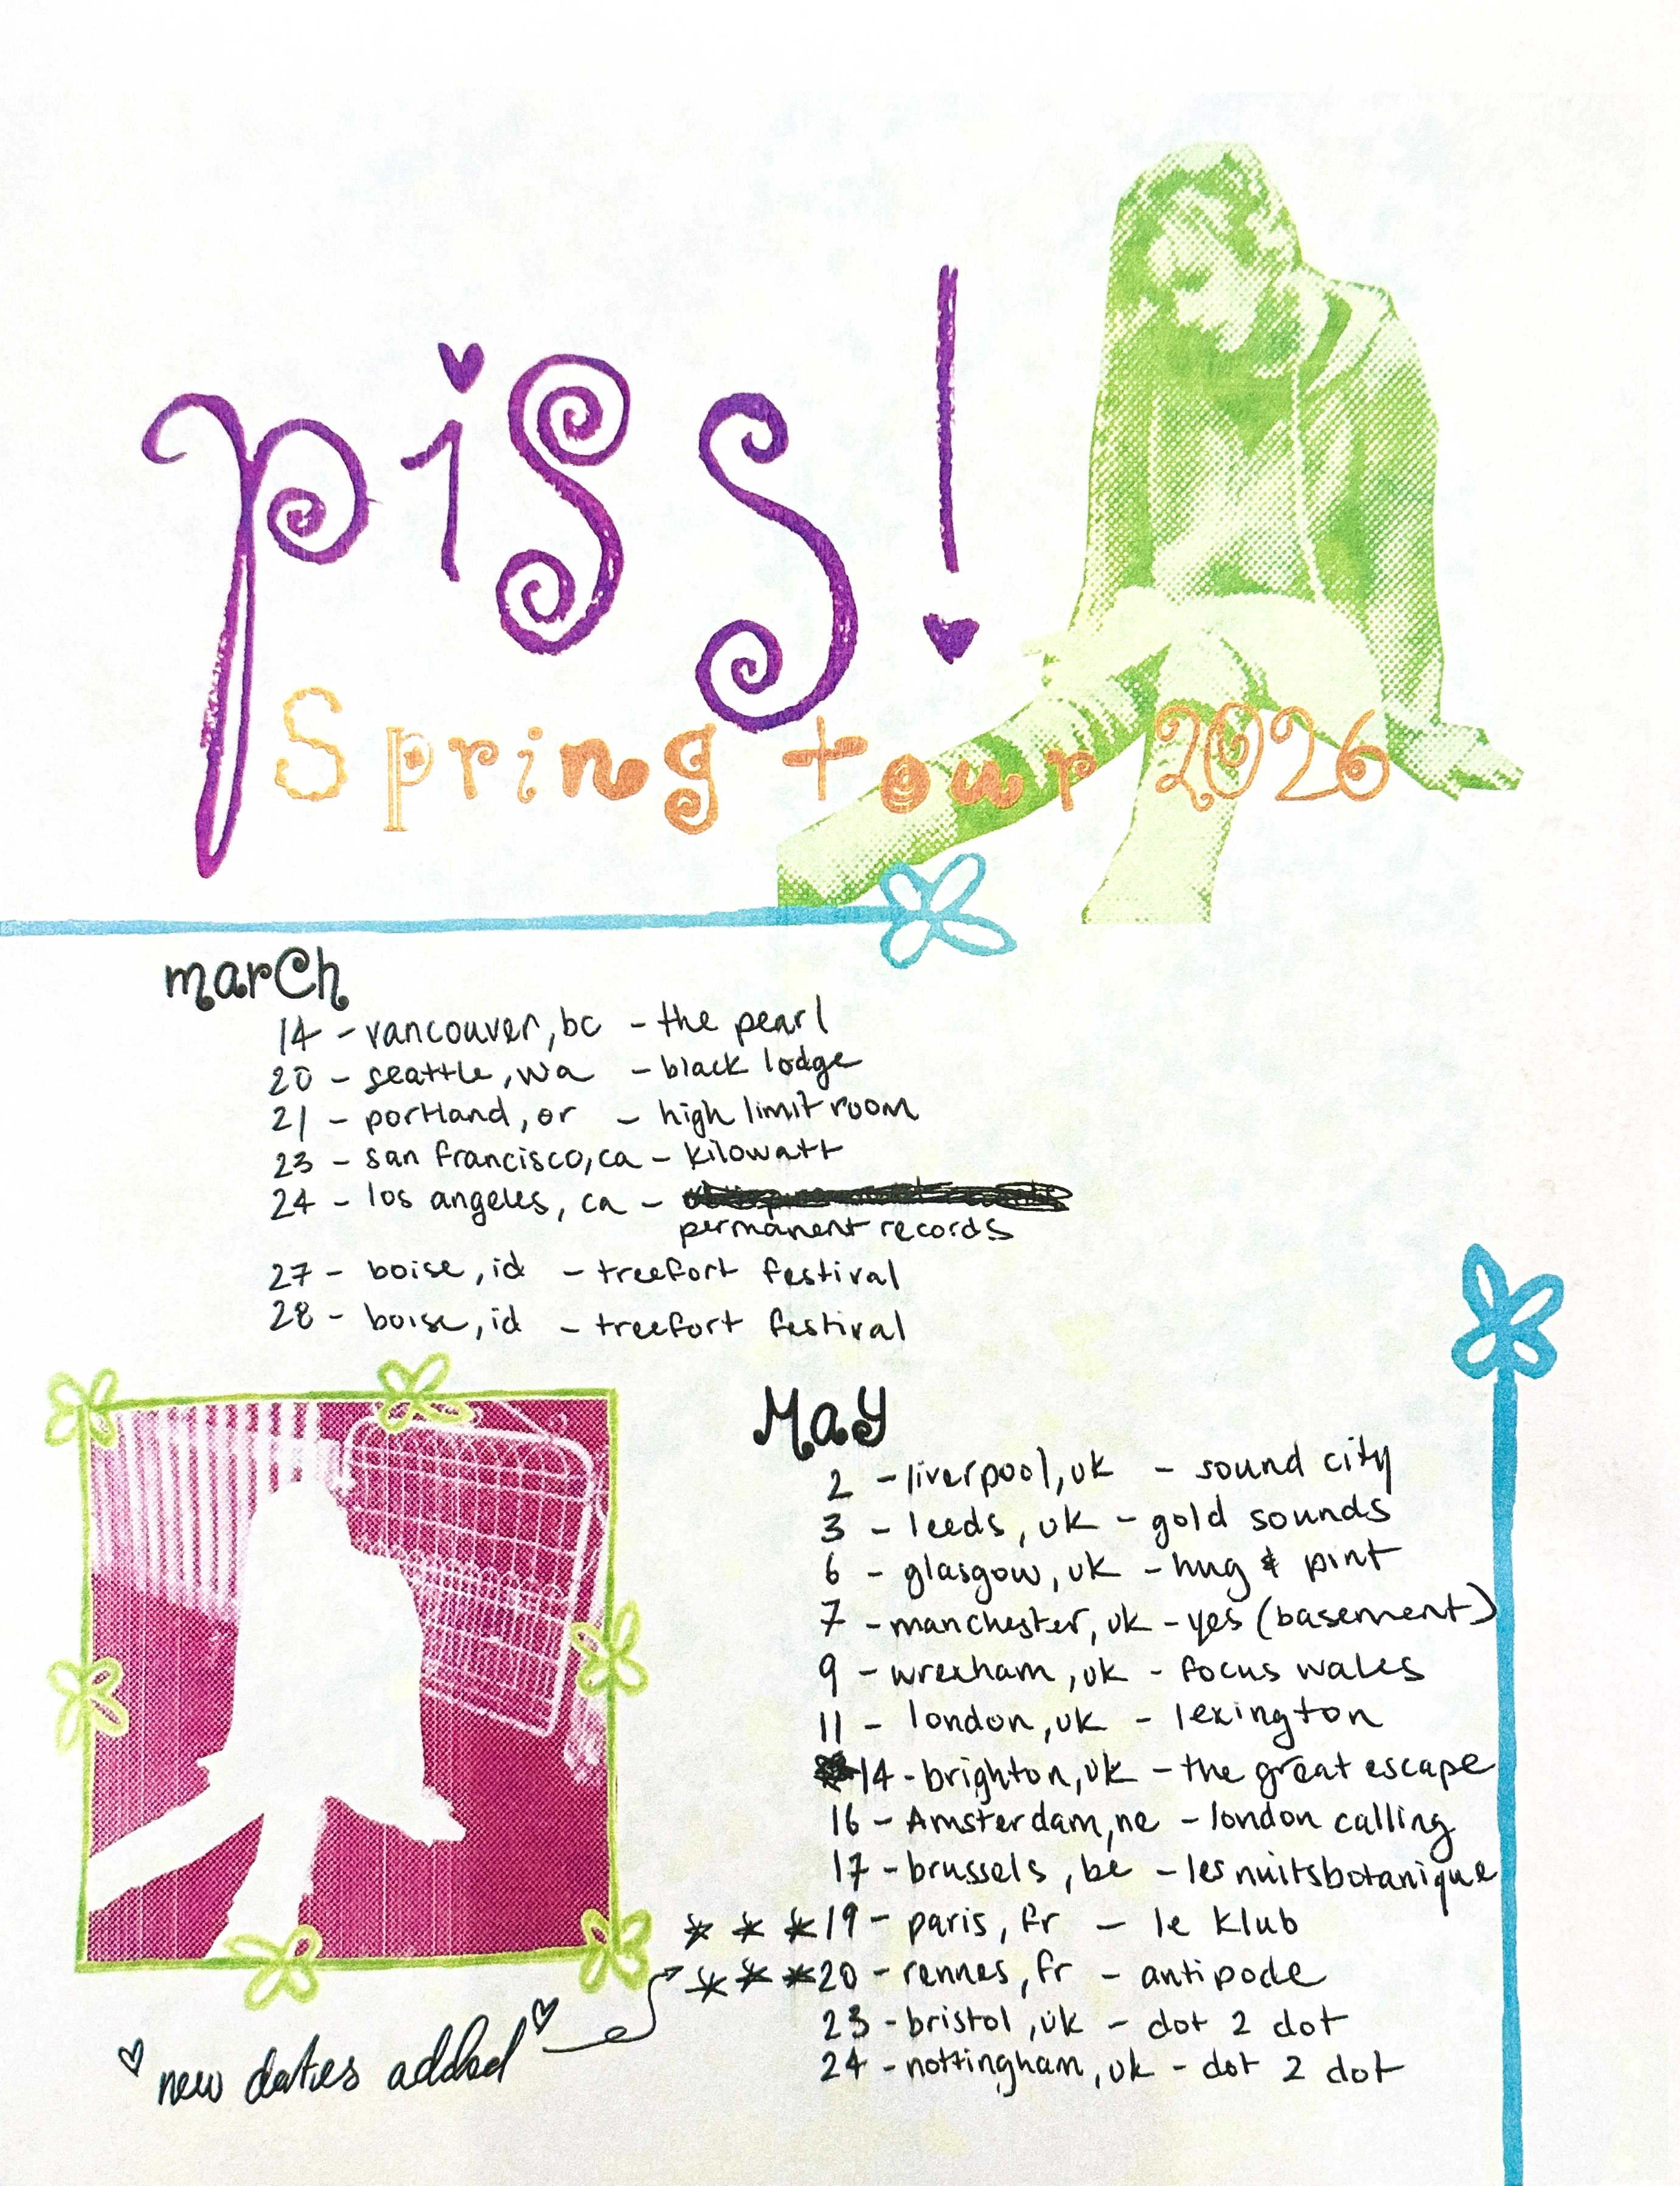 piss!
Spring tour 2026
march
14 - vancouver, bc - the pearl
20 - seattle, wa - black lodge
21 - portland, or - high limit room
23 - san francisco, ca - kilowatt
24 - los angeles, ca -
permanent records
27 - boise, id - treefort festival
28 - boise, id - treefort festival
May
2 - liverpool, uk - sound city
3 - leeds, uk - gold sounds
6 - glasgow, uk - hug & pint
7 - manchester, uk - yes (basement)
9 - wrexham, uk - focus wales
11 - london, uk - lexington
14 - brighton, uk - the great escape
16 - Amsterdam, ne - london calling
17 - brussels, be - les nuits botanique
***19 - paris, fr - le klub
***20 - rennes, fr - antipode
23 - bristol, uk - dot 2 dot
24 - nottingham, uk - dot 2 dot
♡ new dates added ♡